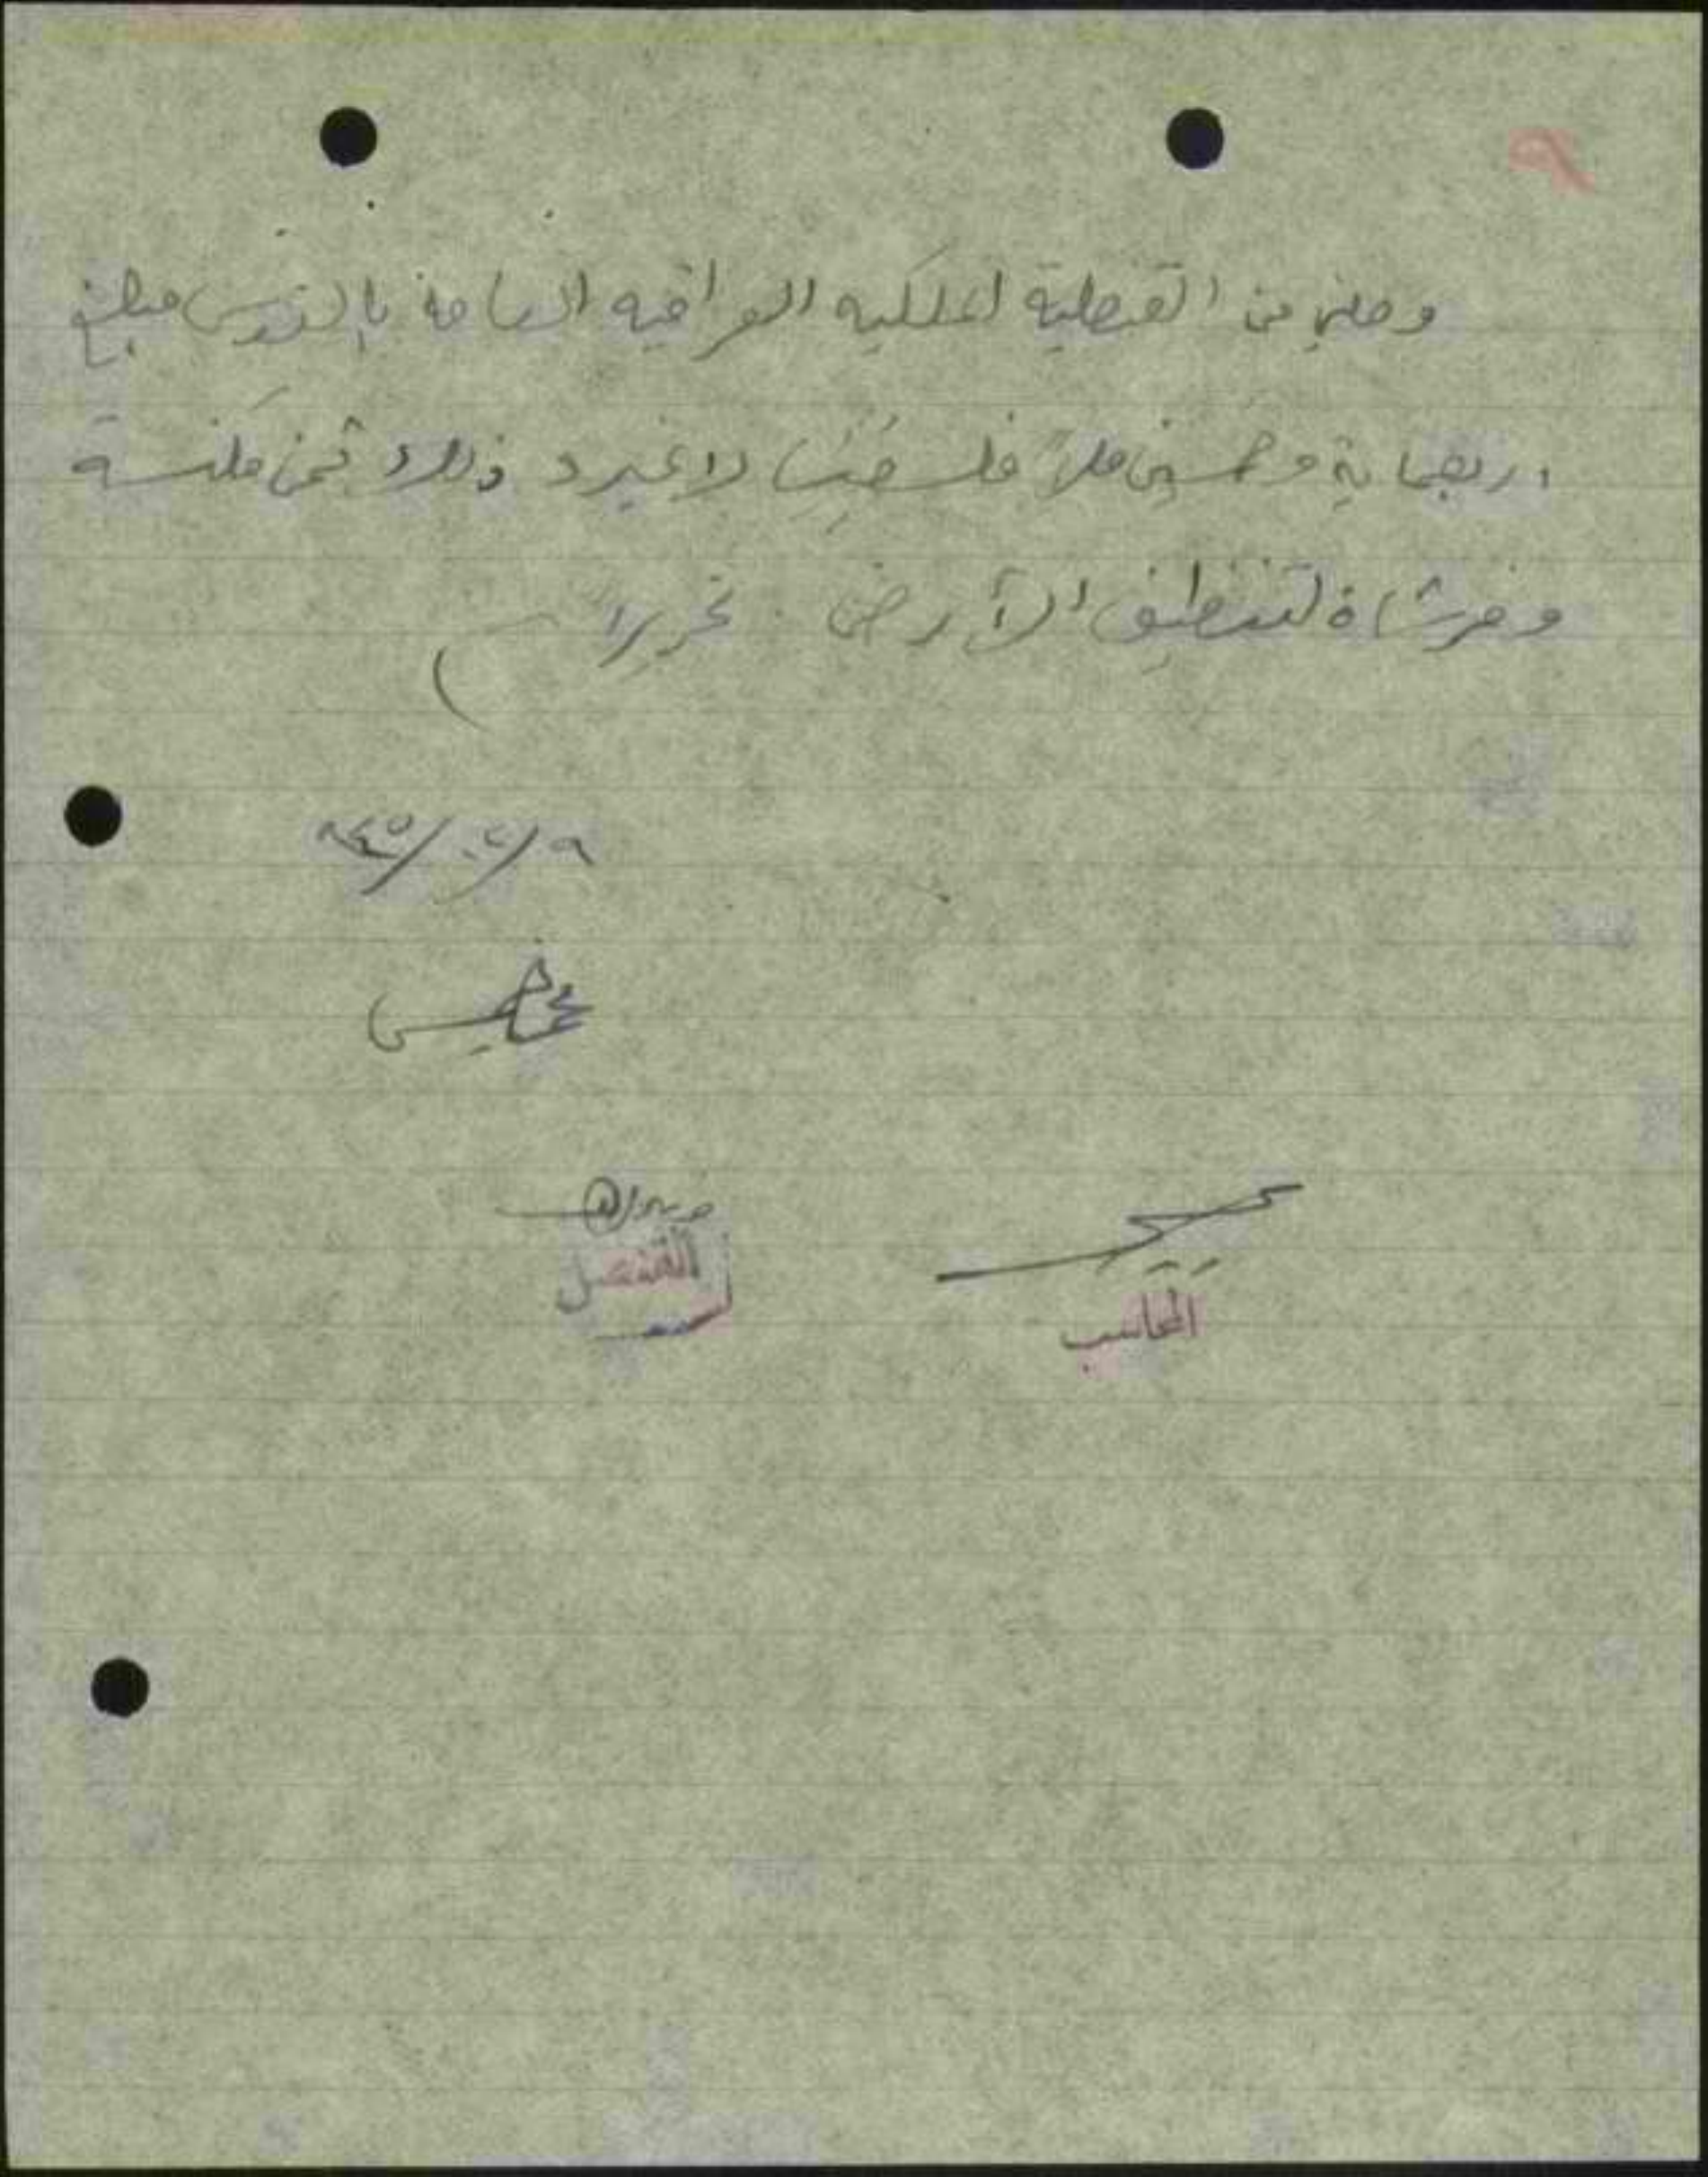 ٩
وصلني من القنصلية الملكيه العراقيه العامة بالقدس مبلغ
اربعماية وخمسين ملاً فلسطينياً لا غير وذلك ثمن مكنسة
وفرشاة لتنظيف الأرض . تحريرا
٩/٢/٩٤٥
القنصل
المحاسب